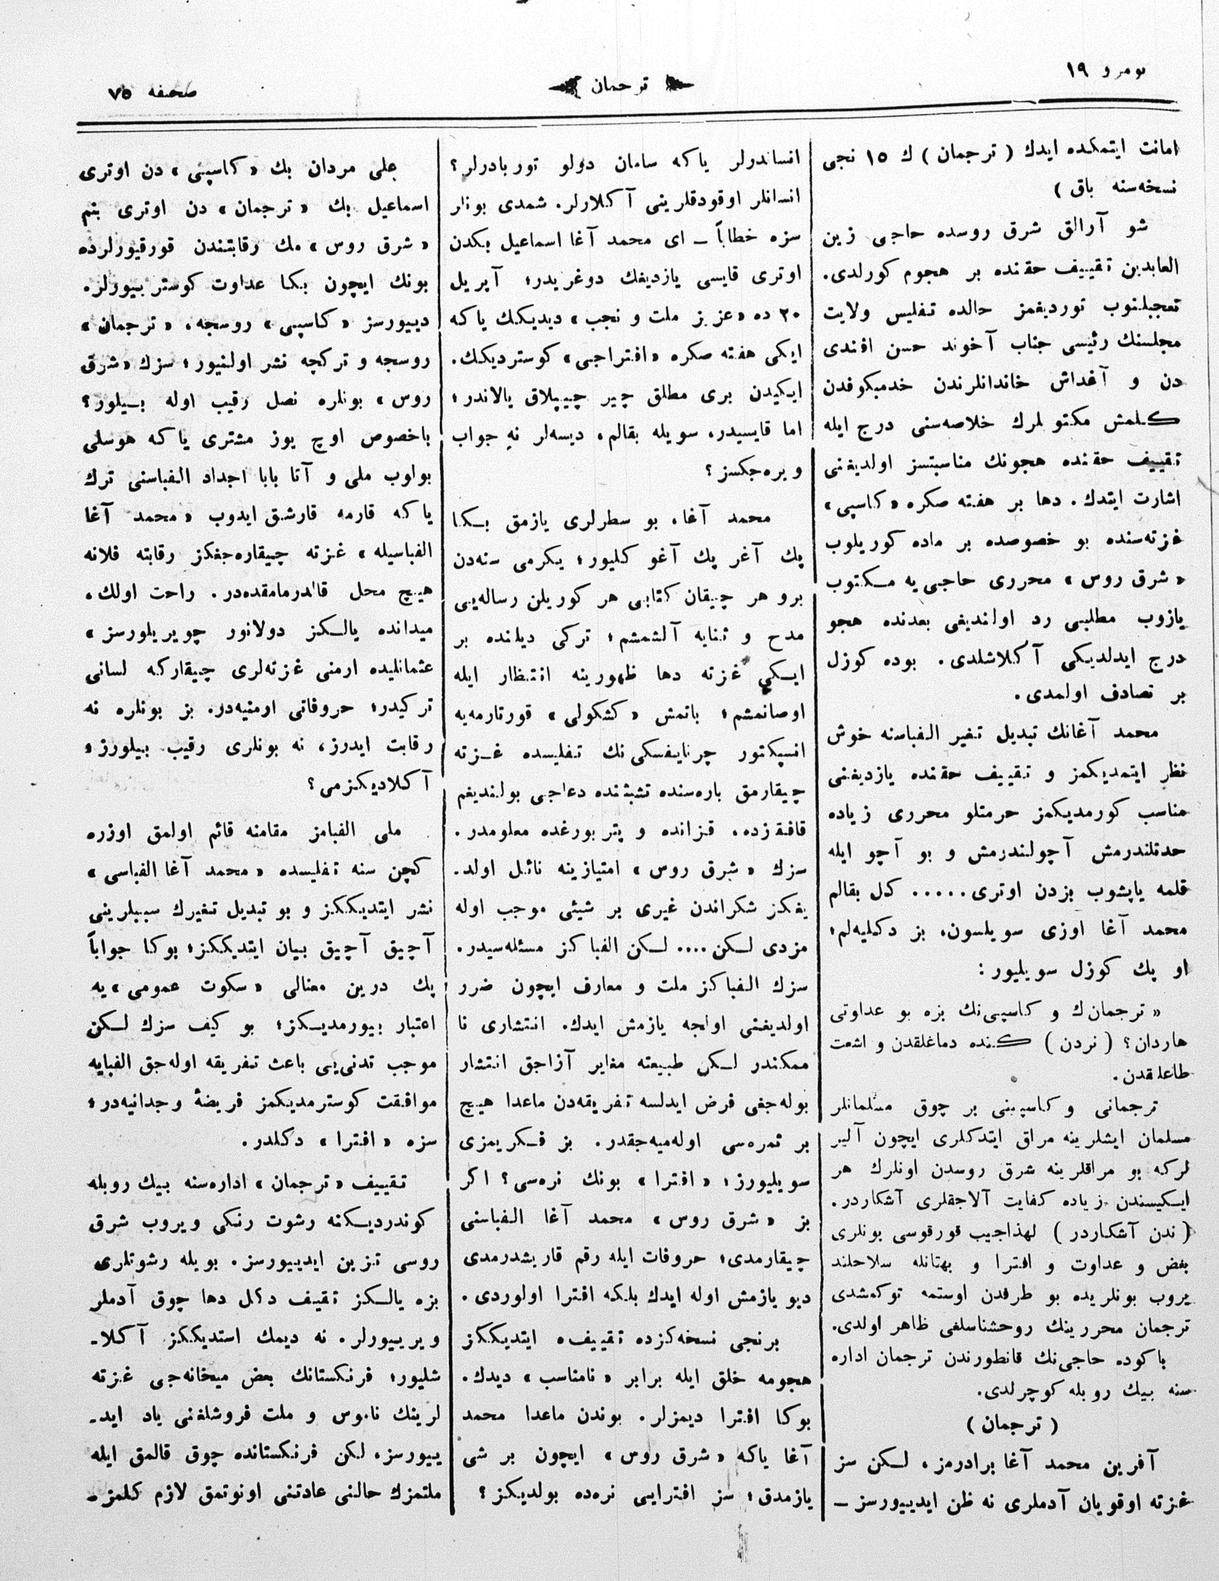 نومرو ١٩
ترجمان
صحیفه ٧٥
امانت ایتمکده ایدك ( ترجمان ) ك ١٥ نجی
نسخه‌سنه باق )
شو آرالق شرق روسده حاجی زین
العابدین تقییف حقنده بر هجوم کورلدی.
تعجبلنوب توردیغمز حالده تفلیس ولایت
مجلسنك رئیسی جناب آخوند حسن افندی
دن و آغداش خاندانلرندن خدمبکوفدن
کلمش مکتوبلرك خلاصه‌سنی درج ایله
تقییف حقنده هجونك مناسبتسز اولدیغنی
اشارت ایتدك. دها بر هفته صکره «کاسپی»
غزته‌سنده بو خصوصده بر ماده کوریلوب
«شرق روس» محرری حاجی‌یه مکتوب
یازوب مطلبی رد اولندیغی بعدنده هجو
درج ایدلدیکی آکلاشلدی. بوده کوزل
بر تصادف اولمدی.
محمد آغانك تبدیل تغیر الفباسنه خوش
نظر ایتمدیکمز و تقییف حقنده یازدیغنی
مناسب کورمدیکمز حرمتلو محرری زیاده
حدتلندرمش آچولندرمش و بو آچو ایله
قلمه یاپشوب بزدن اوتری ..... کل بقالم
محمد آغا اوزی سویلسون، بز دکلیه‌لم؛
او پك کوزل سویلیور :
« ترجمان‌ك و کاسپی‌نك بزه بو عداوتی
هاردان؟ ( نردن ) کنده دماغلقدن و اشعت
طاعلقدن.
ترجمانی و کاسپینی بر چوق مسلمانلر
مسلمان ایشلرینه مراق ایتدکلری ایچون آلیر
لرکه بو مراقلرینه شرق روسدن اونلرك هر
ایکیسندن زیاده کفایت آلاجقلری آشکاردر.
( ندن آشکاردر ) لهذاجیب قورقوسی بونلری
بغض و عداوت و افترا و بهتانله سلاحلند
یروب بونلریده بو طرفدن اوستمه توکمشدی
ترجمان محررینك روحشناسلغی ظاهر اولدی.
باکوده حاجی‌نك قانطورندن ترجمان اداره
سنه بیك روبله کوچرلدی.
( ترجمان )
آفرین محمد آغا برادرمز، لکن سز
غزته اوقویان آدملری نه ظن ایدییورسز —
انساندرلر یاکه سامان دولو توربادرلر؟
انسانلر اوقودقلرینی آکلارلر. شمدی بونلر
سزه خطاباً — ای محمد آغا اسماعیل بکدن
اوتری قایسی یازدیغك دوغریدر؛ آپریل
٢٠ ده «عزیز ملت و نجب» دیدیکك یاکه
ایکی هفته صکره «افتراجی» کوستردیکك.
ایکیدن بری مطلق چیر چیپلاق یالاندر؛
اما قایسیدر، سویله بقالم، دیسه‌لر نه جواب
ویره‌جکسز؟
محمد آغا، بو سطرلری یازمق بکا
پك آغر پك آغو کلیور؛ یکرمی سنه‌دن
برو هر چیقان کتابی هر کوریلن رساله‌یی
مدح و ثنایه آلشمشم؛ ترکی دیلنده بر
ایکی غزته دها ظهورینه انتظار ایله
اوصانمشم؛ باتمش «کشکولی» قورتارمه‌یه
انسپکتور چرنایفسکی‌نك تفلیسده غزته
چیقارمق باره‌سنده تشبثنده دعاجی بولندیغم
قافقزده، قزانده و پتربورغده معلومدر.
سزك «شرق روس» امتیازینه نائل اولد‌ـ
یغکز شکراندن غیری بر شیئی موجب اوله
مزدی لکن .... لکن الفباکز مسئله‌سیدر.
سزك الفباکز ملت و معارف ایچون ضرر
اولدیغنی اولجه یازمش ایدك. انتشاری نا
ممکندر لکن طبیعته مغایر آزاجق انتشار
بوله‌جغی فرض ایدلسه تفریقه‌دن ماعدا هیچ
بر ثمره‌سی اوله‌میه‌جقدر. بز فکریمزی
سویلیورز؛ «افترا» بونك نره‌سی؟ اکر
بز «شرق روس» محمد آغا الفباسنی
چیقارمدی؛ حروفات ایله رقم قاریشدرمدی
دیو یازمش اوله ایدك بلکه افترا اولوردی.
برنجی نسخه‌کزده تقییفه ایتدیککز
هجومه خلق ایله برابر «نامناسب» دیدك.
بوکا افترا دیمزلر. بوندن ماعدا محمد
آغا یاکه «شرق روس» ایچون بر شی
یازمدق؛ سز افترایی نره‌ده بولدیکز؟
علی مردان بك «کاسپی» دن اوتری
اسماعیل بك «ترجمان» دن اوتری بنم
«شرق روس» مك رقابتندن قورقیورلرده
بونك ایچون بکا عداوت کوسترییورلر.
دیییورسز «کاسپی» روسجه، «ترجمان»
روسجه و ترکچه نشر اولنیور؛ سزك «شرق
روس» بونلره نصل رقیب اوله بیلور؟
باخصوص اوچ یوز مشتری یاکه هوسلی
بولوب ملی و آتا بابا اجداد الفباسنی ترك
یاکه قارمه قارشق ایدوب «محمد آغا
الفباسیله» غزته چیقاره‌جغکز رقابته فلانه
هیچ محل قالدرمامقده‌در. راحت اولك،
میدانده یالکز دولانور چویریلورسز»
عثمانلیده ارمنی غزته‌لری چیقارکه لسانی
ترکیدر؛ حروفاتی ارمنیه‌در. بز بونلره نه
رقابت ایدرز، نه بونلری رقیب بیلورز؛
آکلادیکزمی؟
ملی الفبامز مقامنه قائم اولمق اوزره
کچن سنه تفلیسده «محمد آغا الفباسی»
نشر ایتدیککز و بو تبدیل تغیرك سببلرینی
آچیق آچیق بیان ایتدیککز؛ بوکا جواباً
پك درین معنالی «سکوت عمومی»یه
اعتبار بیورمدیکز؛ بو کیف سزك لکن
موجب تدنی‌یی باعث تفریقه اوله‌جق الفبایه
موافقت کوسترمدیکمز فریضهٔ وجدانیه‌در؛
سزه «افترا» دکلدر.
تقییف «ترجمان» اداره‌سنه بیك روبله
کوندردیکنه رشوت رنکی ویروب شرق
روسی تزیین ایدییورسز. بویله رشوتلری
بزه یالکز تقییف دکل دها چوق آدملر
ویرییورلر. نه دیمك استدیککز آکلا‌ـ
شلیور؛ فرنکستانك بعض میخانه‌جی غزته
لرینك ناموس و ملت فروشلغنی یاد اید‌ـ
ییورسز، لکن فرنکستانده چوق قالمق ایله
ملتمزك حالنی عادتنی اونوتمق لازم کلمز‌ـ